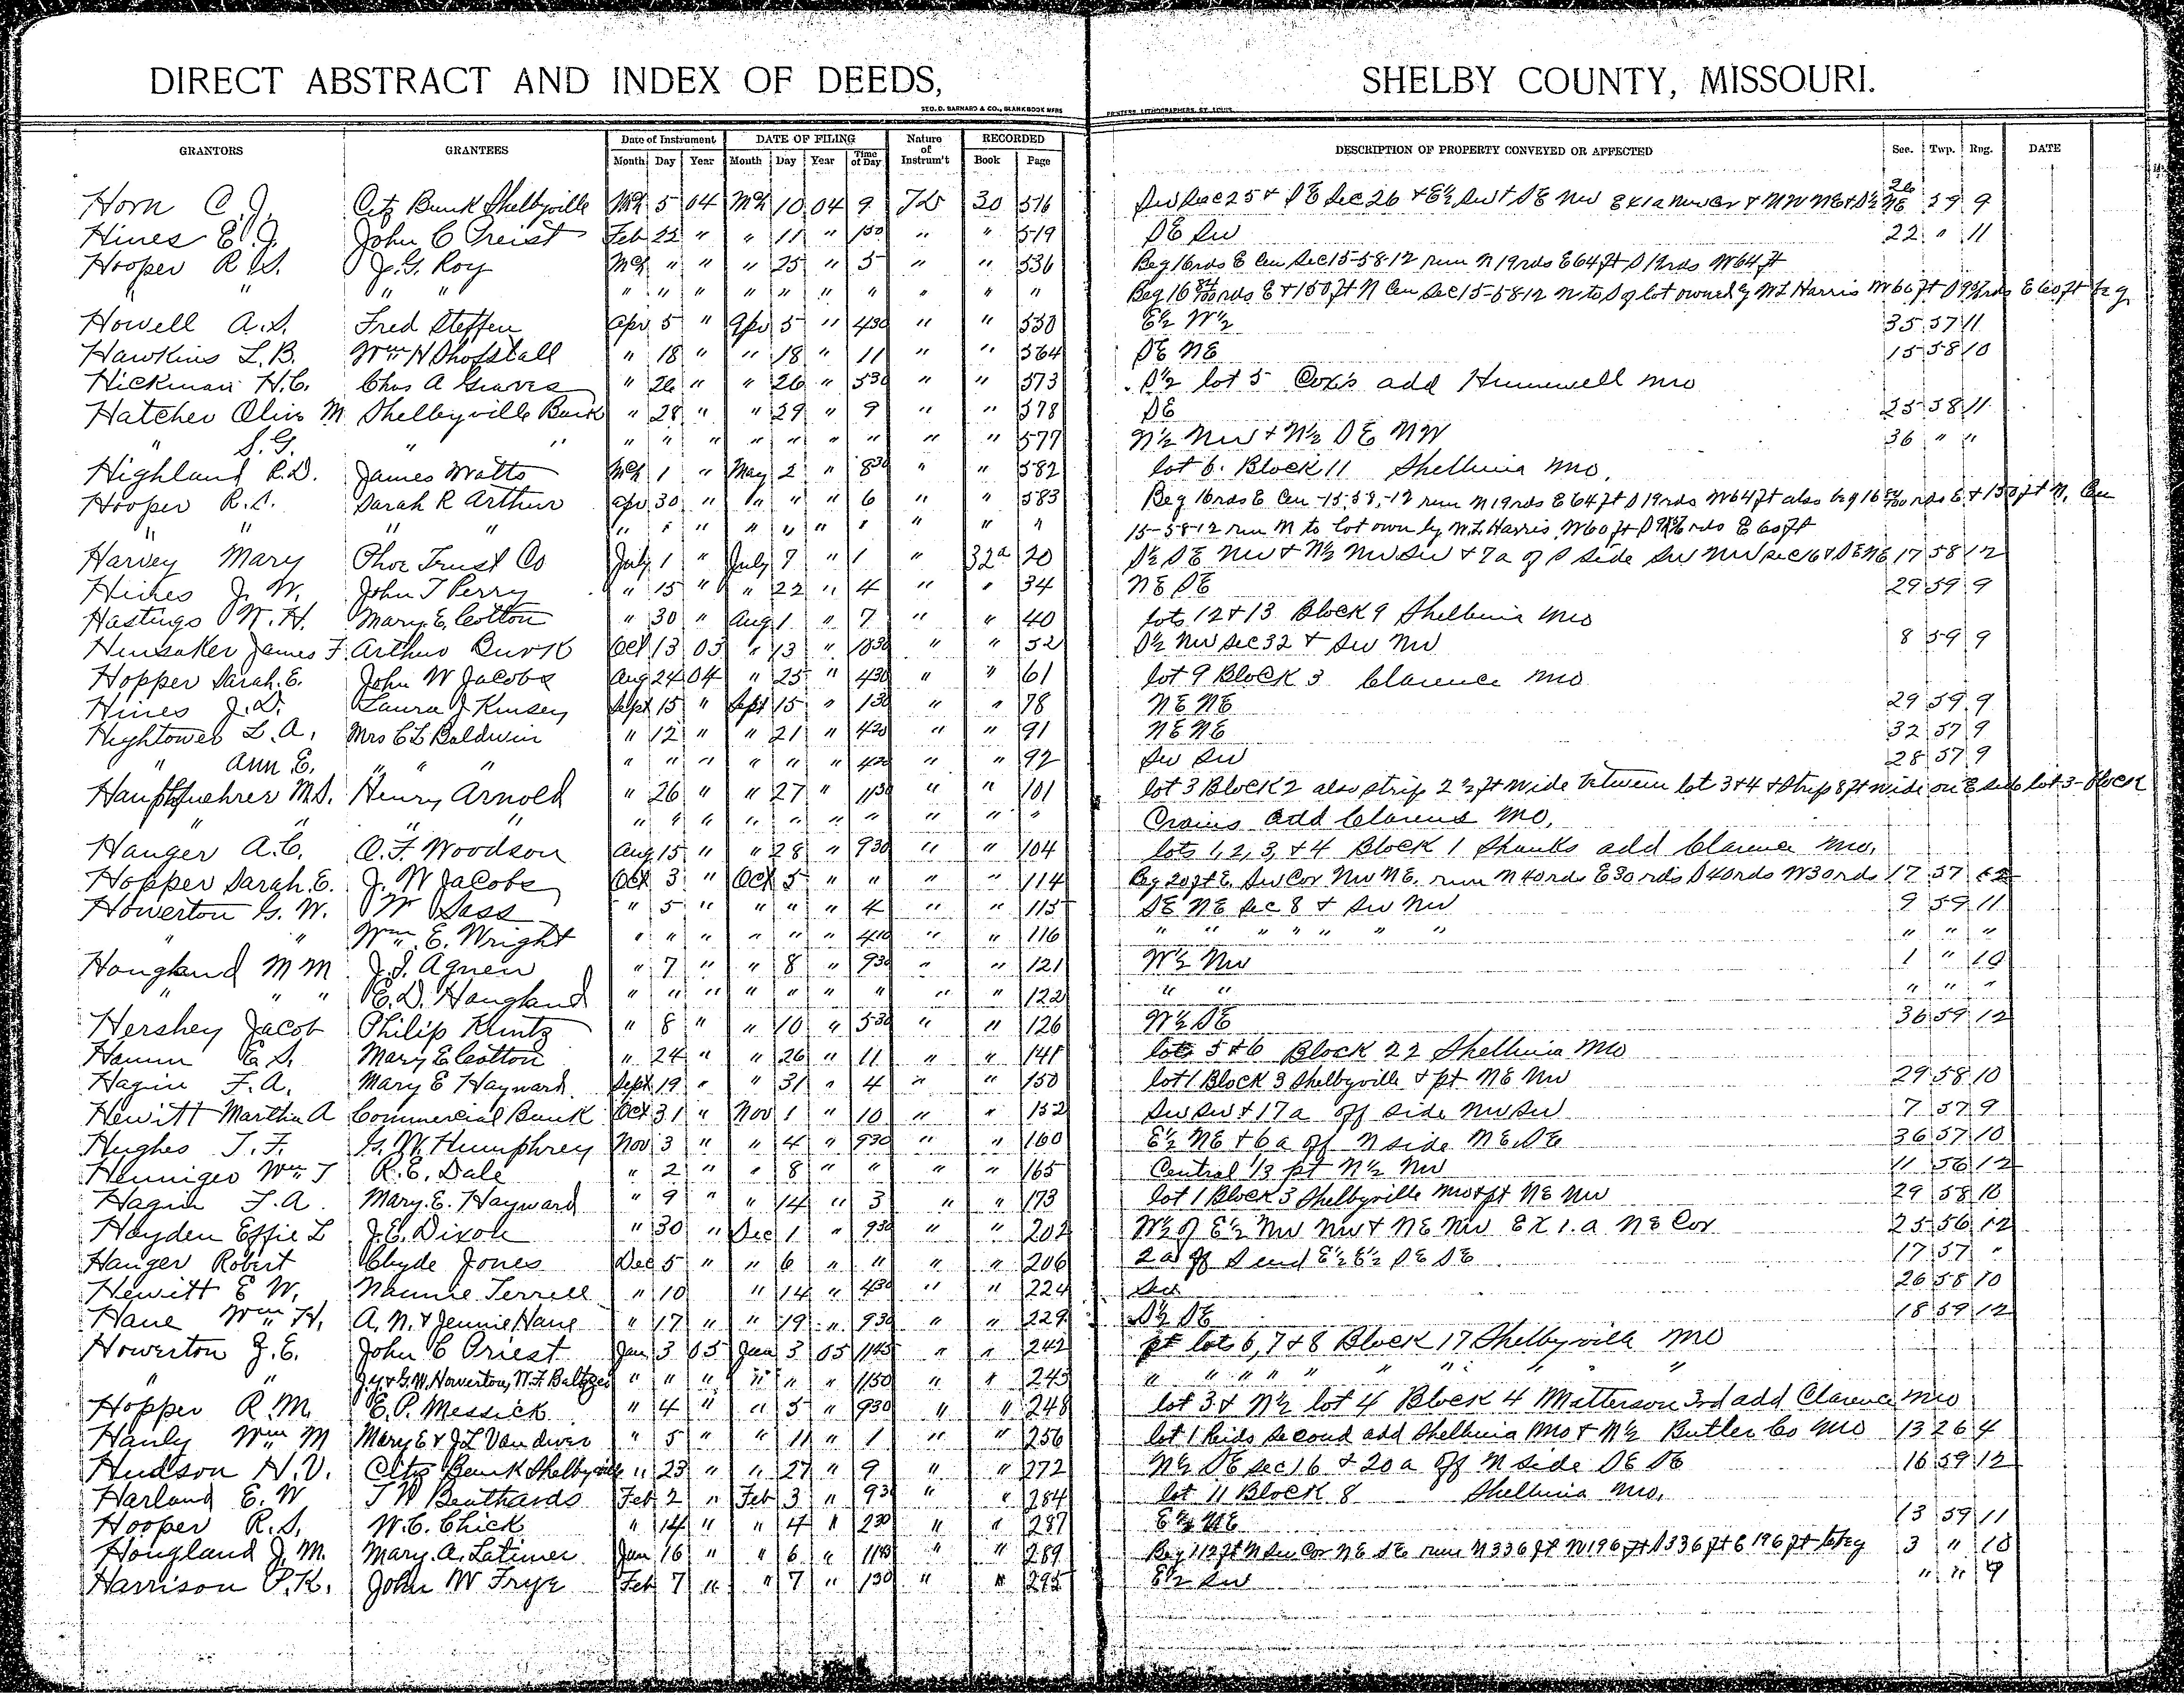 DIRECT ABSTRACT AND INDEX OF DEEDS, SHELBY COUNTY, MISSOURI.
GEO. D. BARNARD & CO., BLANK BOOK MFRS PRINTERS, LITHOGRAPHERS, ST. LOUIS.
GRANTORS GRANTEES Date of Instrument DATE OF FILING Nature of Instrum't RECORDED DESCRIPTION OF PROPERTY CONVEYED OR AFFECTED Sec. Twp. Rng. DATE
Month Day Year Month Day Year Time of Day Book Page
Horn C. J. Citz Bank Shelbyville Mch 5 04 Mch 10 04 9 30 516 Sw Sec 25 & SE Sec 26 & E½ Sw & SE Nw Ex 1a & NW NE & S½ NE 26 59 9
Hines E. J. John C Preist Feb 22 " " 11 " 150 " " 519 SE Sw 22 " 11
Hooper R. S. J. G. Roy Mch " " " 25 " 5 " " 536 Beg 16 rds E Cen Sec 15-58-12 run N 19 rds E 64 ft S 19 rds W 64 ft
" " " " " " " " " " " " " " Beg 16 rds E & 150 ft N Cen Sec 15-58-12 N to S of lot owned by W L Harris W 60 ft S rds E 60 ft beg
Howell A. S. Fred Steffen Apr 5 " Apr 5 " 430 " " 530 E½ W½ 35 57 11
Hawkins L. B. Wm H Shofstall " 18 " " 18 " 11 " " 564 SE NE 15 58 10
Hickman H. C. Chas A Graves " 26 " " 26 " 530 " " 573 S½ lot 5 Cox's add Hunnewell Mo
Hatcher Oliv M Shelbyville Bank " 28 " " 29 " 9 " " 578 SE 25 58 11
" S. G. " " " " " " " " " " " 577 N½ Nw & N½ SE NW 36 " "
Highland R. D. James Watts Mch 1 " May 2 " 830 " " 582 lot 6 Block 11 Shelbina Mo.
Hooper R. S. Sarah R Arthur Apr 30 " " " " 6 " " 583 Beg 16 rds E Cen 15-58-12 run N 19 rds E 64 ft S 19 rds W 64 ft also beg 16 rds E & 150 ft N. Cen
" " " " " " " " " " " " " " 15-58-12 run N to lot own by W. L. Harris W 60 ft S rds E 60 ft
Harvey Mary Phoe Trust Co July 1 " July 7 " 1 " 32a 20 S½ SE Nw & N½ Nw Sw & 7 a of S side Sw Nw Sec 16 & SE NE 17 58 12
Hines J. W. John T Perry " 15 " " 22 " 4 " " 34 NE SE 29 59 9
Hastings W. H. Mary E. Cotton " 30 " Aug 1 " 7 " " 40 lots 12 & 13 Block 9 Shelbina Mo
Hunsaker James F. Arthur Burk Oct 13 03 " 13 " 1030 " " 52 S½ Nw Sec 32 & Sw Nw 8 59 9
Hopper Sarah. E. John W Jacobs Aug 24 04 " 25 " 430 " " 61 lot 9 Block 3 Clarence Mo
Hines J. D. Laura J Kinsey Sept 15 " Sept 15 " 130 " " 78 NE NE 29 59 9
Hightower L. A. Mrs C L Baldwin " 12 " " 21 " 420 " " 91 NE NE 32 57 9
" Ann E. " " " " " " " " " 420 " " 92 Sw Sw 28 57 9
Haupfuehrer M. S. Henry Arnold " 26 " " 27 " 1130 " " 101 lot 3 Block 2 also strip 2½ ft wide between lot 3 & 4 & strip 8 ft wide on E side lot 3 - Block
" " " " " " " " " " " " " " Crains add Clarence Mo.
Hanger A. C. O. F. Woodson Aug 15 " " 28 " 930 " " 104 lots 1, 2, 3, & 4 Block 1 Shanks add Clarence Mo.
Hopper Sarah. E. J. W Jacobs Oct 3 " Oct 5 " " " " 114 Beg 20 ft E. Sw Cor Nw NE. run N 40 rds E 30 rds S 40 rds W 30 rds 17 57 12
Howerton G. W. W Sass " 5 " " " " 4 " " 115 SE NE Sec 8 & Sw Nw 9 59 11
" " Wm. E. Wright " " " " " " 410 " " 116 " " " " " " " " " "
Hougland M M J. S. Agnew " 7 " " 8 " 930 " " 121 W½ Nw 1 " 10
" " " E. D. Hougland " " " " " " " " " 122 " " " " "
Hershey Jacob Philip Kuntz " 8 " " 10 " 530 " " 126 W½ SE 36 59 12
Hamm E. S. Mary E Cotton " 24 " " 26 " 11 " " 141 lots 5 & 6 Block 22 Shelbina Mo
Hagin F. A. Mary E Hayward Sept 19 " " 31 " 4 " " 150 lot 1 Block 3 Shelbyville & pt NE Nw 29 58 10
Hewitt Martha A Commercial Bank Oct 31 " Nov 1 " 10 " " 152 Sw Sw & 17 a off side Nw Sw 7 57 9
Hughes T. F. G. W. Humphrey Nov 3 " " 4 " 930 " " 160 E½ NE & 6 a off N side NE SE 36 57 10
Henniger Wm T R. E. Dale " 2 " " 8 " " " " 165 Central 1/3 pt N½ Nw 11 56 12
Hagin F. A. Mary. E. Hayward " 9 " " 14 " 3 " " 173 lot 1 Block 3 Shelbyville Mo & pt NE Nw 29 58 10
Hayden Effie L J. E. Dixon " 30 " Dec 1 " 930 " " 202 W½ of E½ Nw Nw & NE Nw EX 1. a NE Cor 25 56 12
Hanger Robert Clyde Jones Dec 5 " " 6 " " " " 206 2 a off S end E½ E½ SE SE 17 57 "
Hewitt E W. Nannie Terrell " 10 " 14 " 430 " " 224 Sw 26 58 10
Hane Wm H. A. N. & Jennie Hane " 17 " " 19 " 930 " " 229 S½ SE 18 59 12
Howerton J. E. John C Priest Jan 3 05 Jan 3 05 1145 " " 242 pt lots 6, 7 & 8 Block 17 Shelbyville Mo
" " J. Y. & G. W. Howerton, W. F. Baltzer " " " " " " 1150 " " 243 " " " " " " " " " "
Hopper R. M. E. P. Messick " 4 " " 5 " 930 " " 248 lot 3 & N½ lot 4 Block 4 Matterson 3rd add Clarence Mo
Hanly Wm M Mary E & J. L Vandiver " 5 " " 11 " 1 " " 256 lot 1 Reids Second add Shelbina Mo & N½ Butler Co Mo 13 26 4
Hudson H. V. Citz Bank Shelbyville " 23 " " 27 " 9 " " 272 N½ SE Sec 16 & 20 a off N side SE SE 16 59 12
Harland E. W T W Beathards Feb 2 " Feb 3 " 930 " " 284 lot 11 Block 8 Shelbina Mo.
Hooper R. S. W. C. Chick " 14 " " 4 " 230 " " 287 E½ NE 13 59 11
Hougland J. M. Mary. A. Latimer Jan 16 " " 6 " 1140 " " 289 Beg 112 ft N Sw Cor NE SE run N 336 ft W 196 ft S 336 ft E 196 ft to beg 3 " 10
Harrison P. K. John W Frye Feb 7 " " 7 " 130 " " 295 E½ Sw " " 9